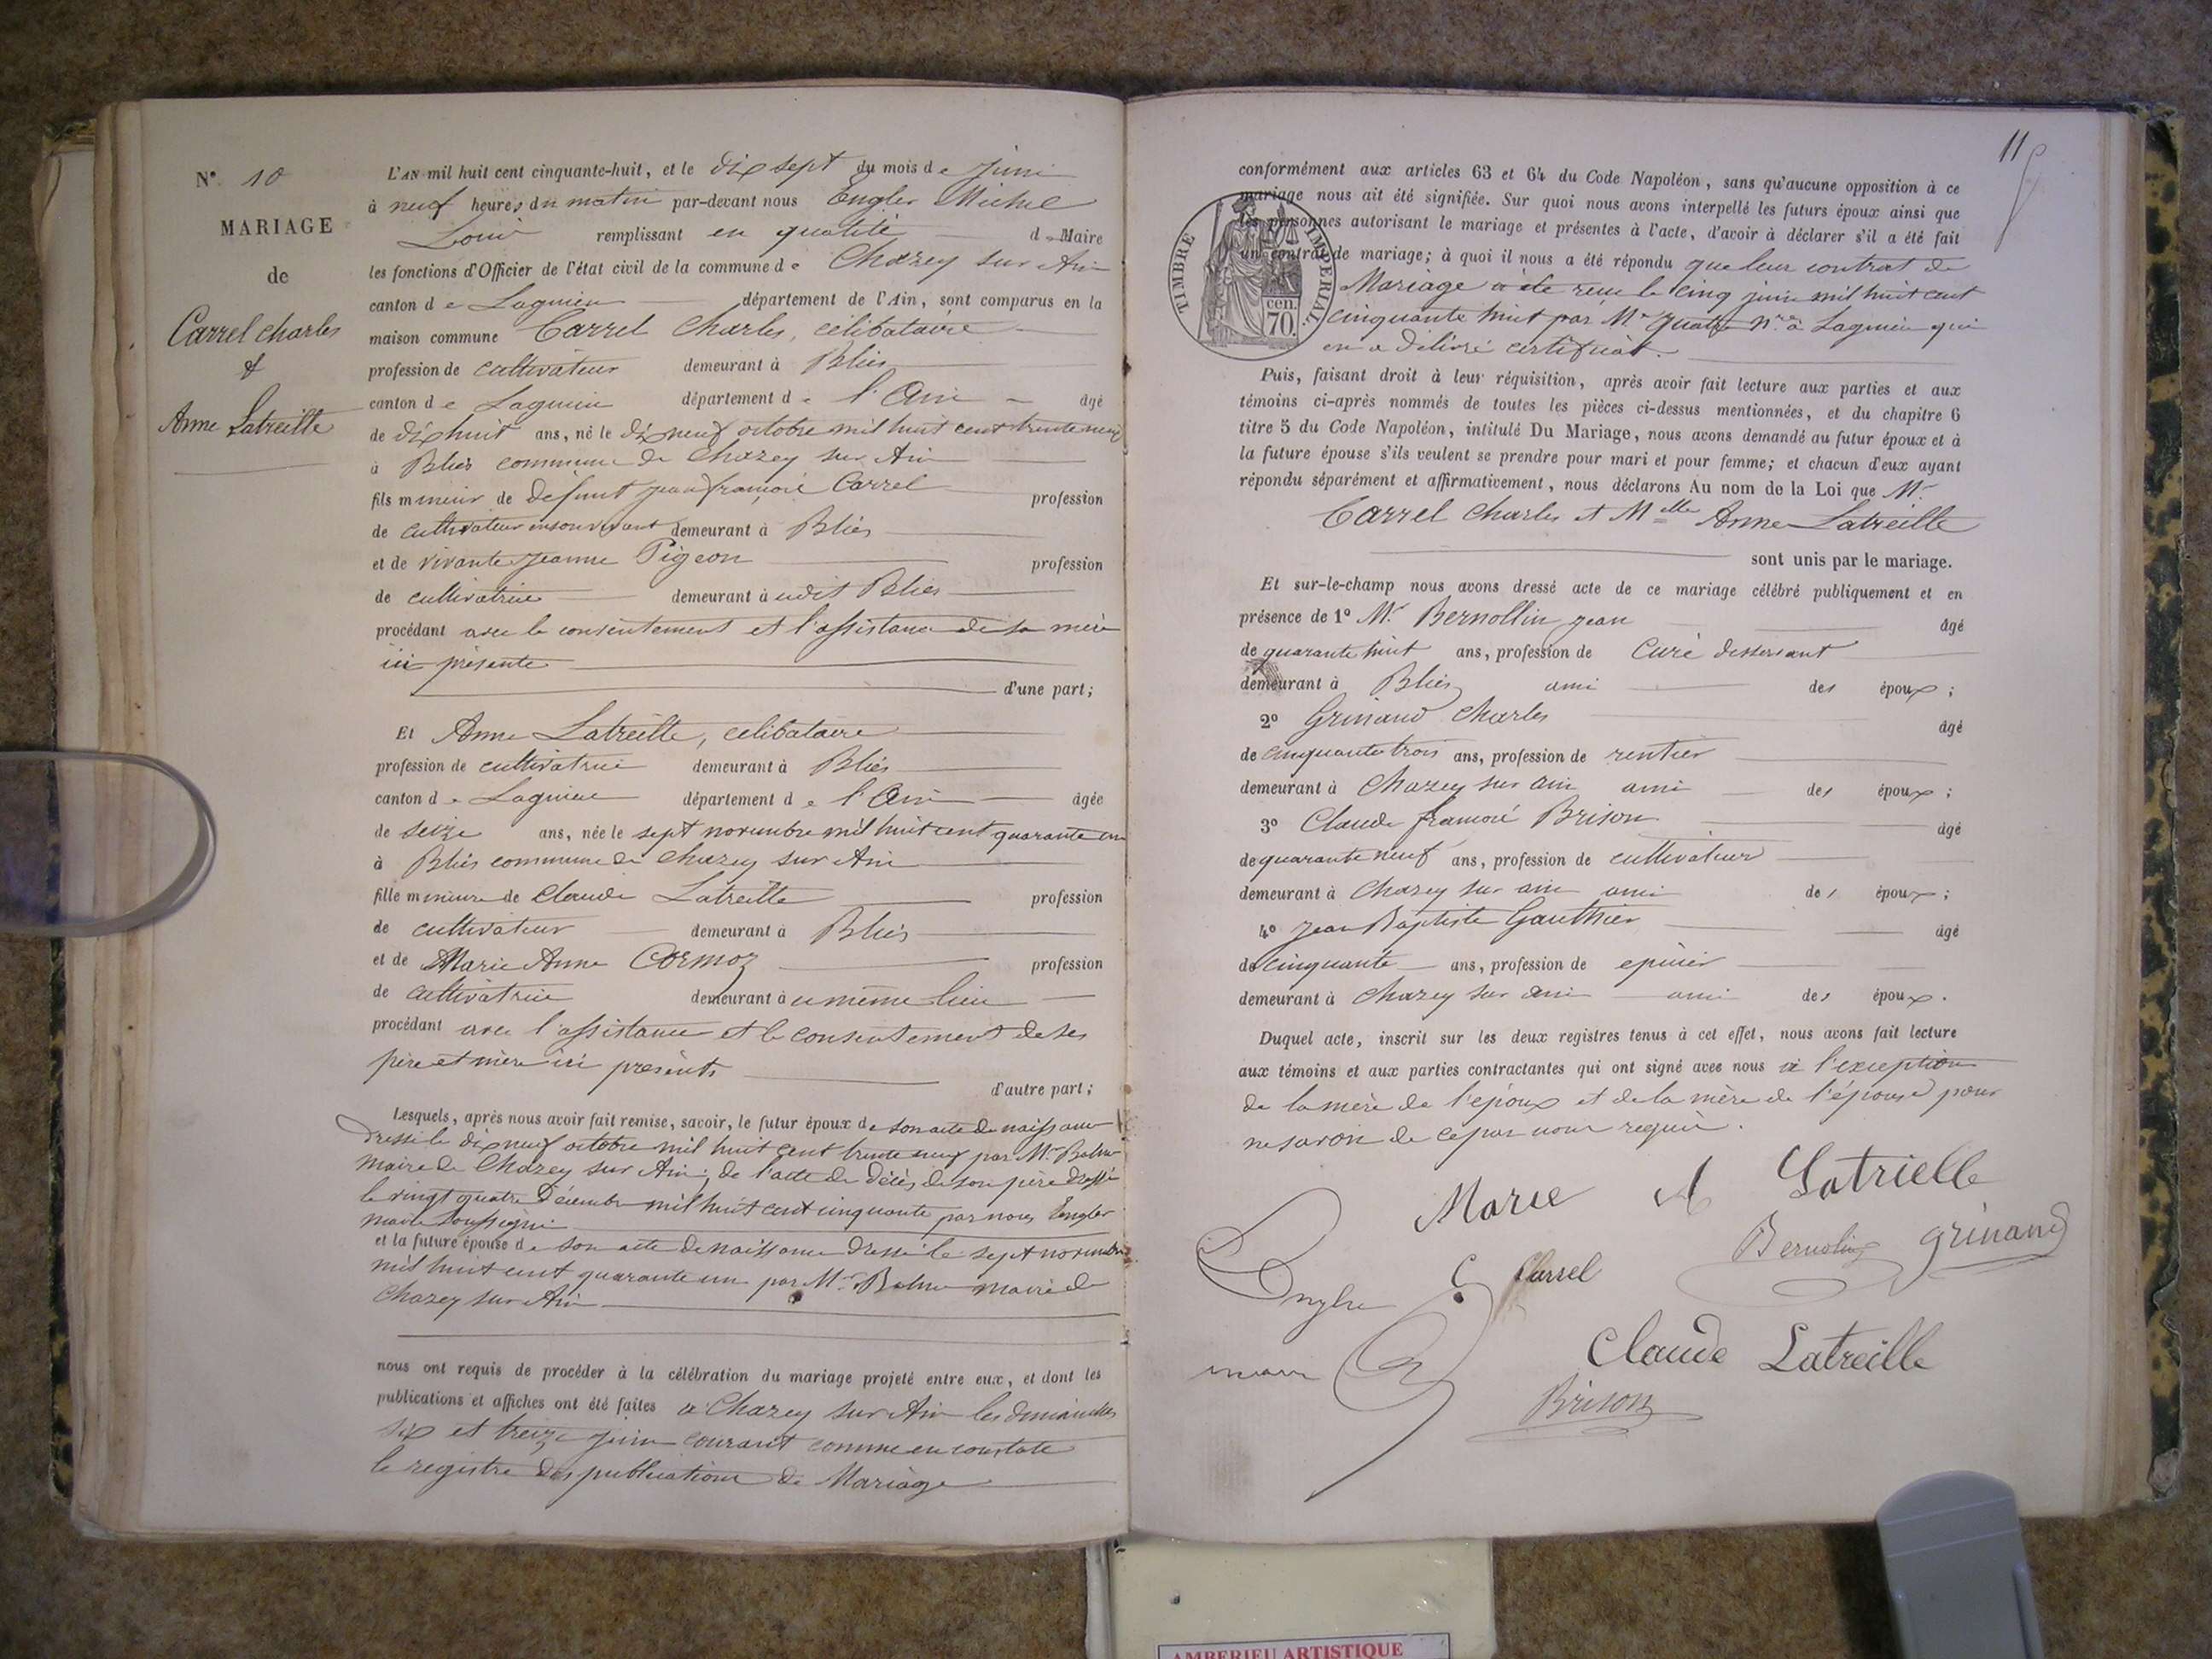 N° 10
MARIAGE
de
Carrel Charles
&
Anne Latreille
L'AN mil huit cent cinquante-huit, et le dix sept du mois de juin
à neuf heures du matin par-devant nous Engler Michel
Louis remplissant en qualité de Maire
les fonctions d'Officier de l'état civil de la commune de Chazey sur Ain
canton de Lagnieu département de l'Ain, sont comparus en la
maison commune Carrel Charles, célibataire
profession de cultivateur demeurant à Bliés
canton de Lagnieu département de l'Ain âgé
de dix huit ans, né le dix neuf octobre mil huit cent trente neuf
à Bliés commune de Chazey sur Ain
fils mineur de defunt jean françois Carrel profession
de cultivateur en son vivant demeurant à Bliés
et de vivante jeanne Pigeon profession
de cultivatrice demeurant à udit Bliés
procédant avec le consentement et l'assistance de sa mère
ici présente
d'une part;
Et Anne Latreille, célibataire
profession de cultivatrice demeurant à Bliés
canton de Lagnieu département de l'Ain âgée
de seize ans, née le sept novembre mil huit cent quarante un
à Bliés commune de Chazey sur Ain
fille mineure de Claude Latreille profession
de cultivateur demeurant à Bliés
et de Marie Anne Cormoz profession
de cultivatrice demeurant à u même lieu
procédant avec l'assistance et le consentement de ses
père et mère ici présents
d'autre part;
Lesquels, après nous avoir fait remise, savoir, le futur époux de son acte de naissance
dressé le dix neuf octobre mil huit cent trente neuf par Mr Balme
maire de Chazey sur Ain; de l'acte de décès de son père dressé
le vingt quatre Décembre mil huit cent cinquante par nous Engler
maire soussigné
et la future épouse de son acte de naissance dressé le sept novembre
mil huit cent quarante un par Mr Balme maire de
Chazey sur Ain
nous ont requis de procéder à la célébration du mariage projeté entre eux, et dont les
publications et affiches ont été faites à Chazey sur Ain les dimanches
six et treize juin courant comme en constate
le registre des publications de Mariage
11
conformément aux articles 63 et 64 du Code Napoléon, sans qu'aucune opposition à ce
mariage nous ait été signifiée. Sur quoi nous avons interpellé les futurs époux ainsi que
les personnes autorisant le mariage et présentes à l'acte, d'avoir à déclarer s'il a été fait
un contrat de mariage; à quoi il nous a été répondu que leur contrat de
Mariage a été reçu le cinq juin mil huit cent
cinquante huit par Me nre à Lagnieu qui
en a délivré certificat.
TIMBRE IMPERIAL
cen.
70.
Puis, faisant droit à leur réquisition, après avoir fait lecture aux parties et aux
témoins ci-après nommés de toutes les pièces ci-dessus mentionnées, et du chapitre 6
titre 5 du Code Napoléon, intitulé Du Mariage, nous avons demandé au futur époux et à
la future épouse s'ils veulent se prendre pour mari et pour femme; et chacun d'eux ayant
répondu séparément et affirmativement, nous déclarons Au nom de la Loi que Mr
Carrel Charles et Melle Anne Latreille
sont unis par le mariage.
Et sur-le-champ nous avons dressé acte de ce mariage célébré publiquement et en
présence de 1° Mr Bernollin jean âgé
de quarante huit ans, profession de Curé desservant
demeurant à Bliés ami des époux;
2° Grinand Charles âgé
de cinquante trois ans, profession de rentier
demeurant à Chazey sur ain ami des époux;
3° Claude françois Brison âgé
de quarante neuf ans, profession de cultivateur
demeurant à Chazey sur ain ami des époux;
4° jean Baptiste Gauthier âgé
de cinquante ans, profession de epicier
demeurant à Chazey sur ain ami des époux.
Duquel acte, inscrit sur les deux registres tenus à cet effet, nous avons fait lecture
aux témoins et aux parties contractantes qui ont signé avec nous à l'exception
de la mère de l'époux et de la mère de l'épouse pour
ne savoir de ce par nous requis.
Marie A Latrielle
Bernolin Grinand
Engler C Carrel
maire Claude Latreille
Brison
AMBERIEU ARTISTIQUE